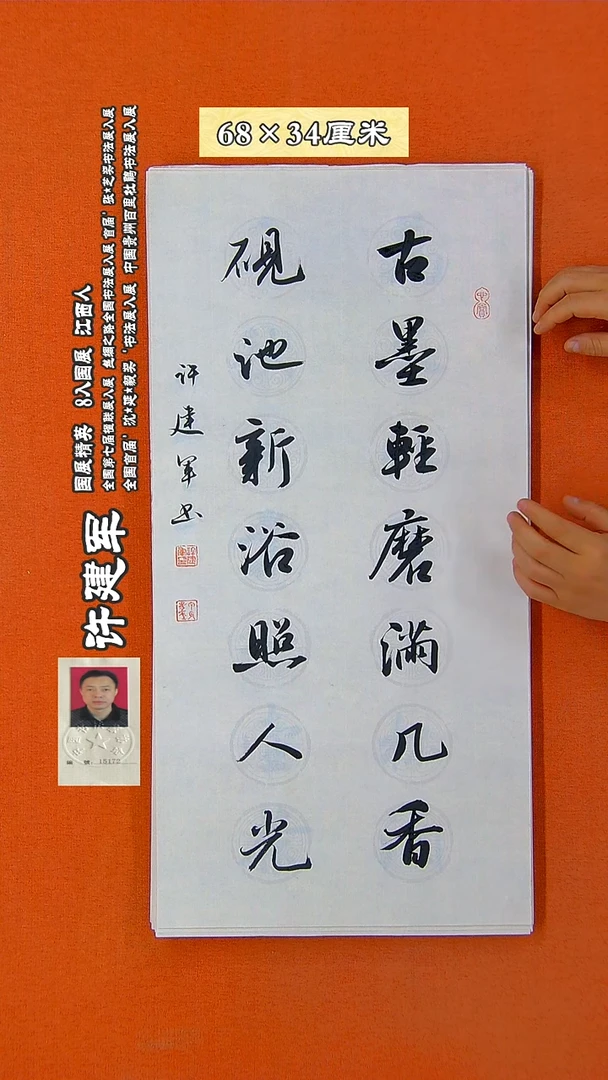 68×34厘米
古墨輕磨滿几香
硯池新浴照人光
许建军书
许建军
国展精英 8入国展 江西人
全国第七届楹联展入展 丝绸之路全国书法展入展 首届'张*芝奖书法展入展
全国首届'沈*延*毅奖'书法展入展 中国贵州百里杜鹃书法展入展
编 号: 15172